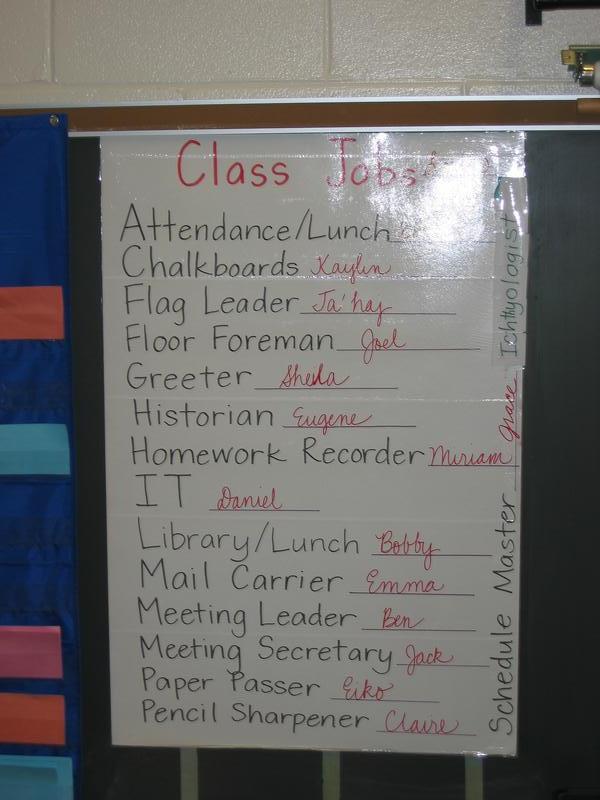 Class Jobs
Attendance/Lunch
Chalkboards Kaylin
Flag Leader Ja'haj
Floor Foreman Joel
Greeter Sheila
Historian Eugene
Homework Recorder Miriam
IT Daniel
Library/Lunch Bobby
Mail Carrier Emma
Meeting Leader Ben
Meeting Secretary Jack
Paper Passer Eiko
Pencil Sharpener Claire
Schedule Master Grace
Ichthyologist